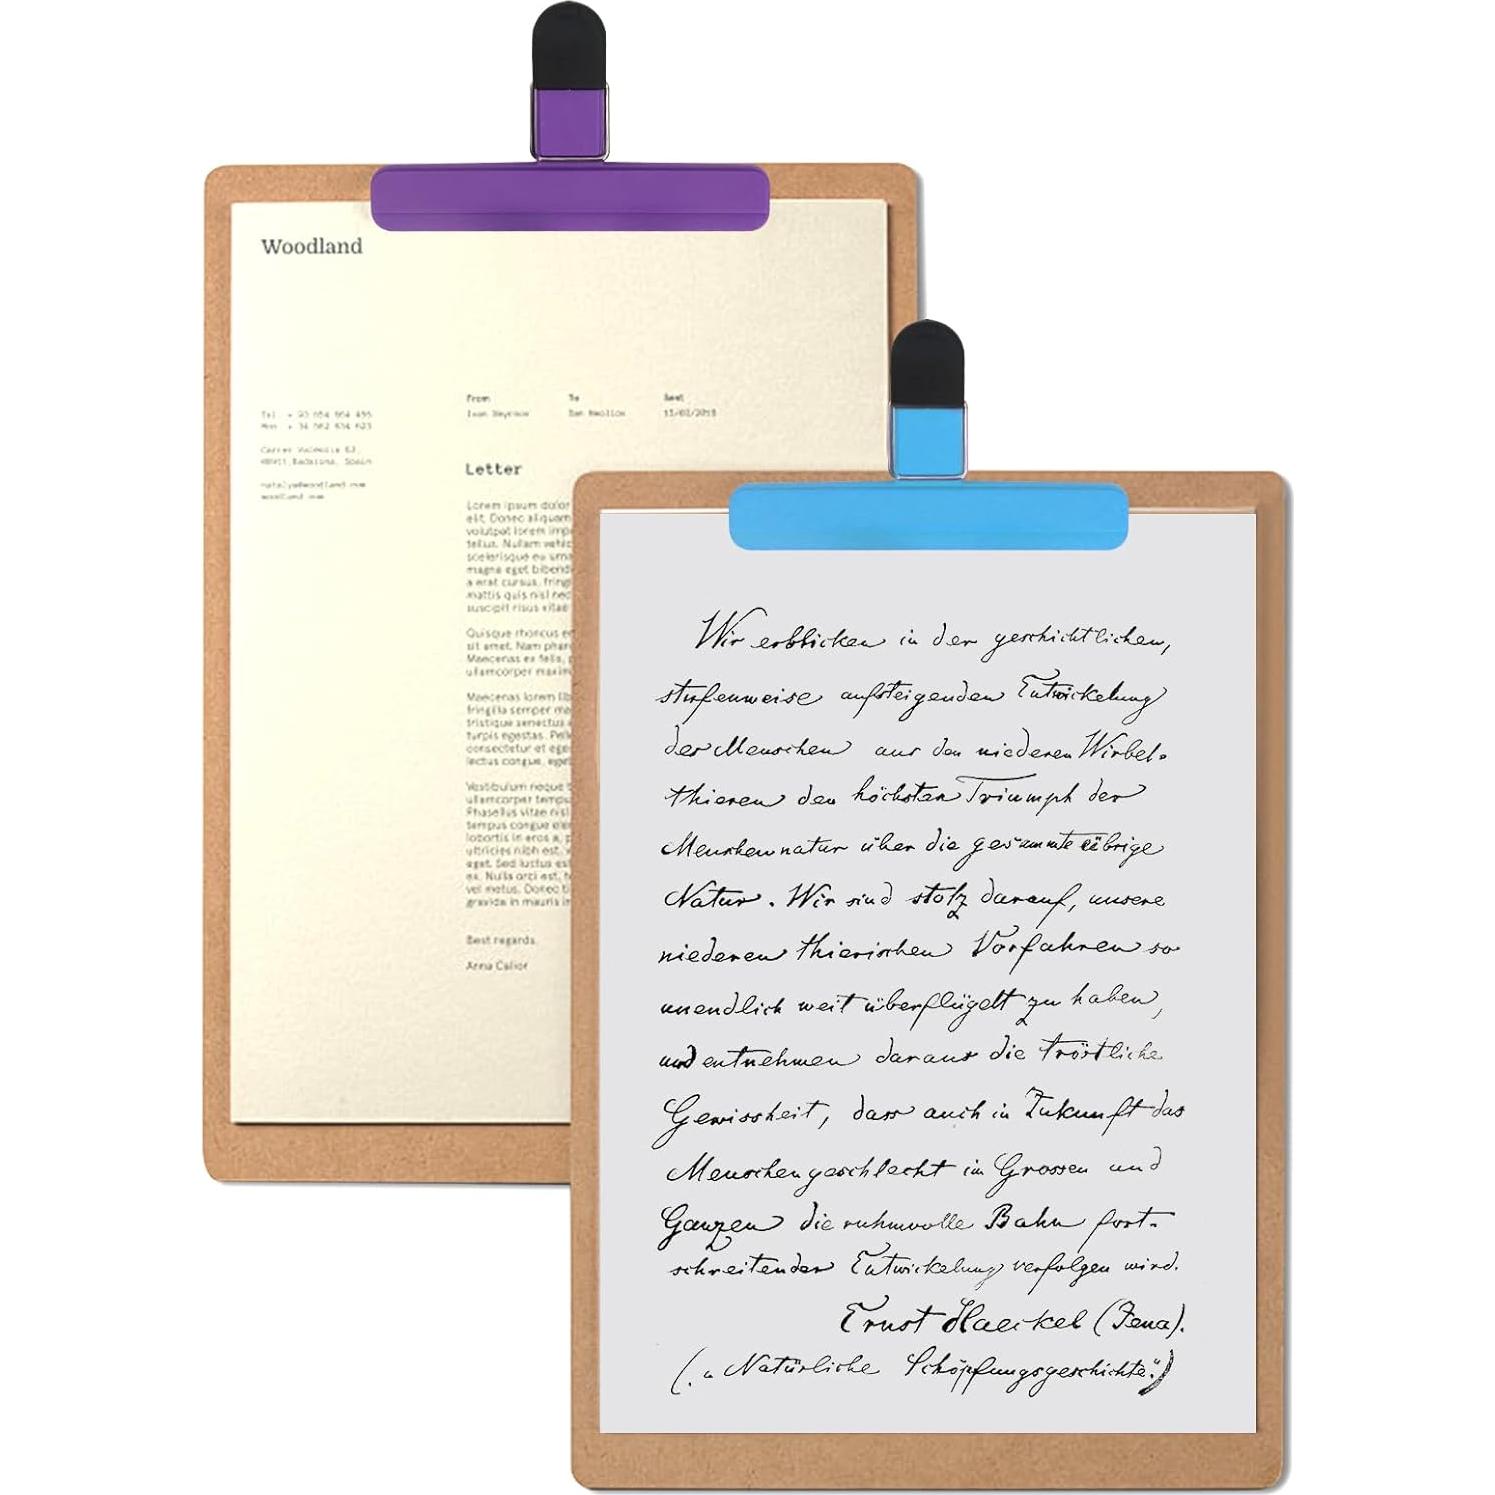 Woodland
From To Sent
13/02/2018
Letter
Lorem ipsum dolor
elit. Donec aliquam
volutpat lorem
tellus. Nullam
scelerisque eu urna
magna eget
a erat cursus,
mattis quis nisl nec
suscipit risus vitae
Quisque rhoncus
sit amet. Nam
Maecenas ex felis,
ullamcorper
Maecenas lorem
fringilla semper
tristique senectus
turpis egestas.
consectetur et
lectus congue,
Vestibulum neque
ullamcorper
Phasellus vitae nisl
tempus congue
lobortis in eros a,
ultricies nibh est,
eget. Sed luctus
ex. Nulla orci est,
vel metus. Donec
gravida in mauris
Best regards.
Anna Calior
Wir erblicken in der geschichtlichen,
stufenweise aufsteigenden Entwickelung
des Menschen aus den niederen Wirbel-
thieren den höchsten Triumph der
Menschennatur über die gesammte übrige
Natur. Wir sind stolz darauf, unsere
niederen thierischen Vorfahren so
unendlich weit überflügelt zu haben,
und entnehmen daraus die tröstliche
Gewissheit, dass auch in Zukunft das
Menschengeschlecht im Grossen und
Ganzen die ruhmvolle Bahn fort-
schreitender Entwickelung verfolgen wird.
Ernst Haeckel (Jena).
(. „Natürliche Schöpfungsgeschichte“.)